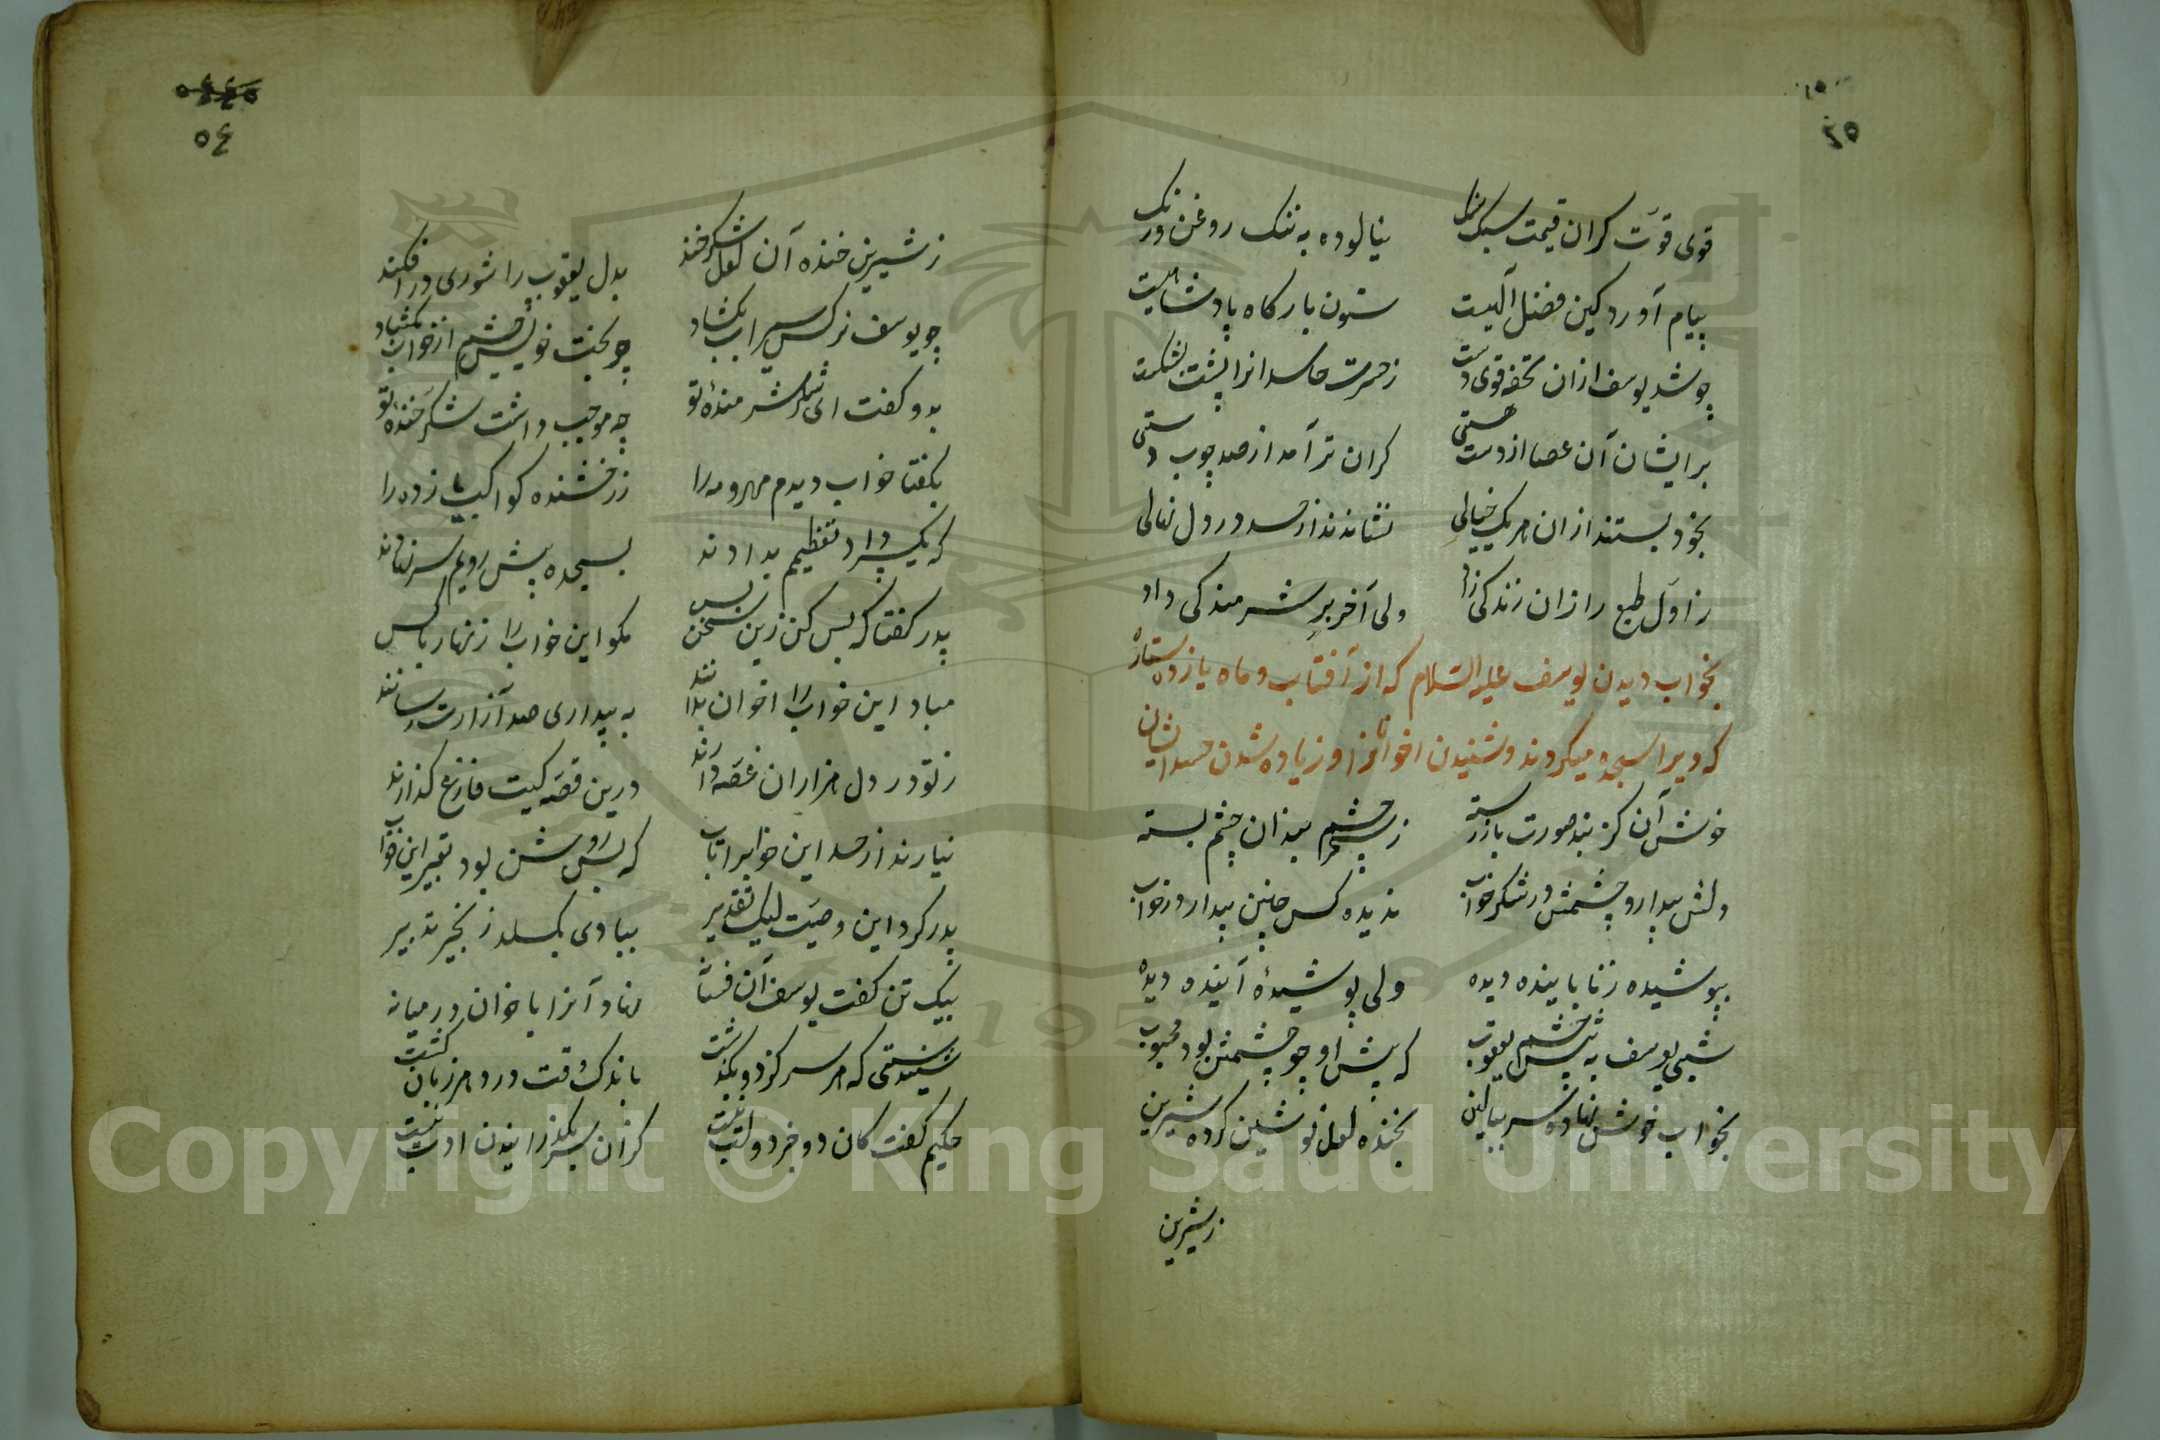 ٥٣
قوی قوت کران قیمت سبک سنک نیالوده به ننک روغن ورنک
پیام آورد کین فضل الهیست ستون بارکاه پادشاهیست
چو شد یوسف ازان تحفه قوی دست زحسرت حاسدانرا پشت بشکست
برایشان آن عصا از دست هستی کران تر آمد از صد چوب دستی
بخود بستند ازان هر یک خیالی نشاندند از حسد در دل نهالی
زاول طبع را زان زندکی زاد ولی آخر بر شرمندکی داد
بخواب دیدن یوسف علیه السلام که از آفتاب و ماه یازده ستاره
که ویرا سجده میکردند وشنیدن اخوانرا و زیاده شدن حسد ایشان
خوش آن کز بند صورت بازرسته زسحر چشم بندان چشم بسته
دلش بیدار و چشمش در شکر خواب ندیده کس چنین بیدار در خواب
بپوشیده زنا باینده دیده ولی پوشیدۀ آینده دیده
شبی یوسف به پیش چشم یعقوب که پیش او چو چشمش بود محبوب
بخواب خوش نهاده سر ببالین بخنده لعل نوشین کرده شیرین
زشیرین
٥٤
زشیرین خنده آن لعل شکرخند بدل یعقوب را شوری درافکند
چو یوسف نرکس سیراب بکشاد چو بخت خویش چشم از خواب بکشاد
بدو کفت ای شکر شرمندۀ تو چه موجب داشت شکر خندۀ تو
بکفتا خواب دیدم مهر و مه را زرخشنده کواکب یازده را
که یکسر داد تعظیمم بدادند بسجده پیش رویم سر نهادند
پدر کفتا که بس کن زین سخن بس مکو این خواب را زنهار با کس
مباد این خواب را اخوان بدانند به بیداری صد آزارت رسانند
زتو در دل هزاران غصه دارند درین قصه کیت فارغ کذارند
نیارند از حسد این خوابرا تاب که بس روشن بود تعبیر این خواب
پدر کرد این وصیت لیک تقدیر ببادی بکسلد زنجیر تدبیر
بیک تن کفت یوسف آن فسانه نهاد آنرا باخوان در میانه
شنیدستی که هر سر کز دو بکذشت باندک وقت ورد هر زبان کشت
حکیم کفت کان دو جز دو لب نیست کزان سر بکذرانیدن ادب نیست
Copyright © King Saud University